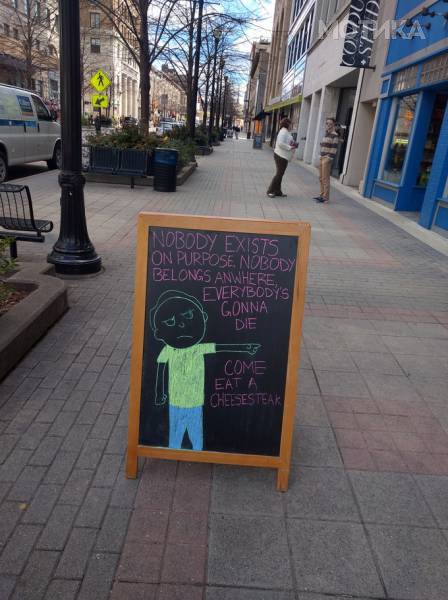 МОТИКА
NOBODY EXISTS
ON PURPOSE, NOBODY
BELONGS ANWHERE,
EVERYBODY'S
GONNA
DIE
COME
EAT A
CHEESESTEAK